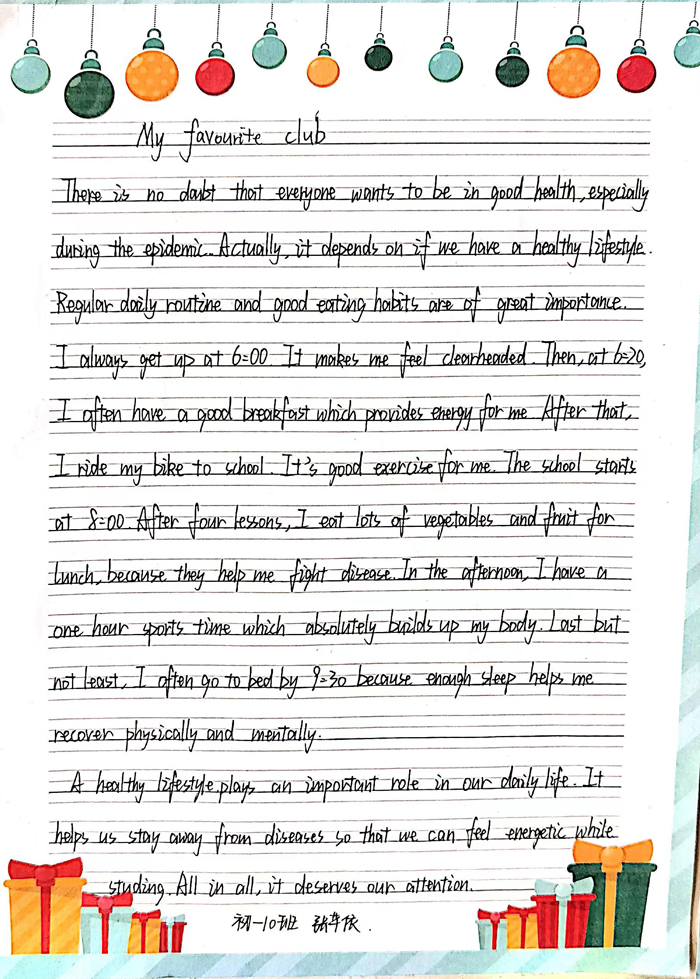 My favourite club
There is no doubt that everyone wants to be in good health, especially
during the epidemic. Actually, it depends on if we have a healthy lifestyle.
Regular daily routine and good eating habits are of great importance.
I always get up at 6:00 It makes me feel clearheaded. Then, at 6:20,
I often have a good breakfast which provides energy for me After that,
I ride my bike to school. It's good exercise for me. The school starts
at 8:00. After four lessons, I eat lots of vegetables and fruit for
lunch, because they help me fight disease. In the afternoon, I have a
one hour sports time which absolutely builds up my body. Last but
not least, I often go to bed by 9:30 because enough sleep helps me
recover physically and mentally.
A healthy lifestyle plays an important role in our daily life. It
helps us stay away from diseases so that we can feel energetic while
studing. All in all, it deserves our attention.
初一10班 张